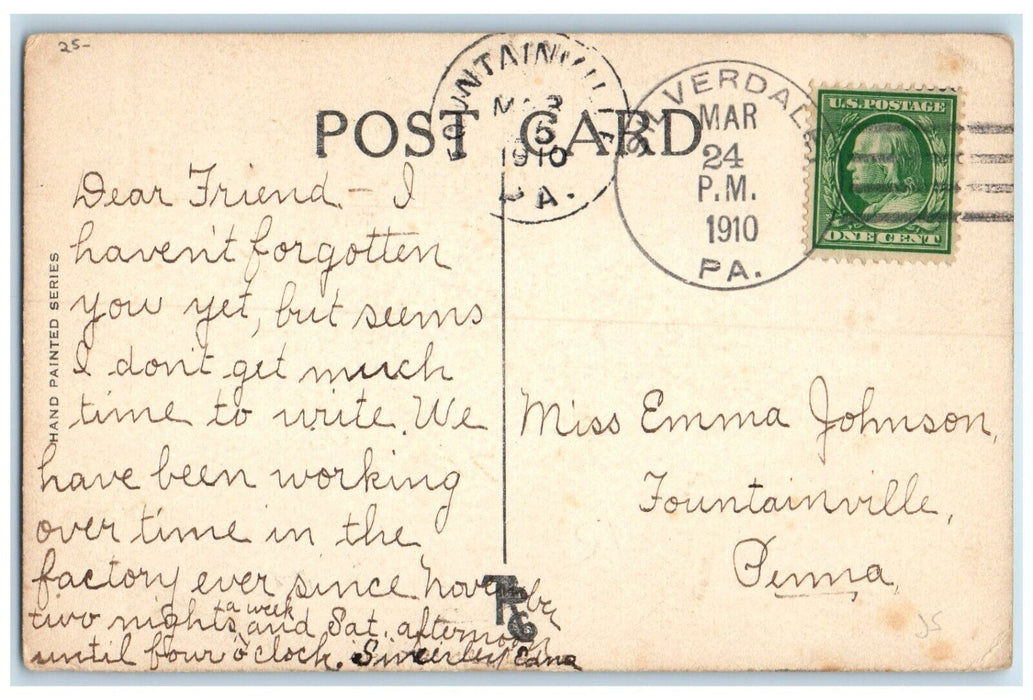 25-
POST CARD
FOUNTAINVILLE
MAR
5
1910
PA.
SILVERDALE
MAR
24
P.M.
1910
PA.
U.S. POSTAGE
ONE CENT
HAND PAINTED SERIES
Dear Friend - I
haven't forgotten
you yet, but seems
I don't get much
time to write. We
have been working
over time in the
factory ever since November
two nights a week and Sat. afternoon
until four o'clock. Sincerely Edna
Miss Emma Johnson,
Fountainville,
Penna,